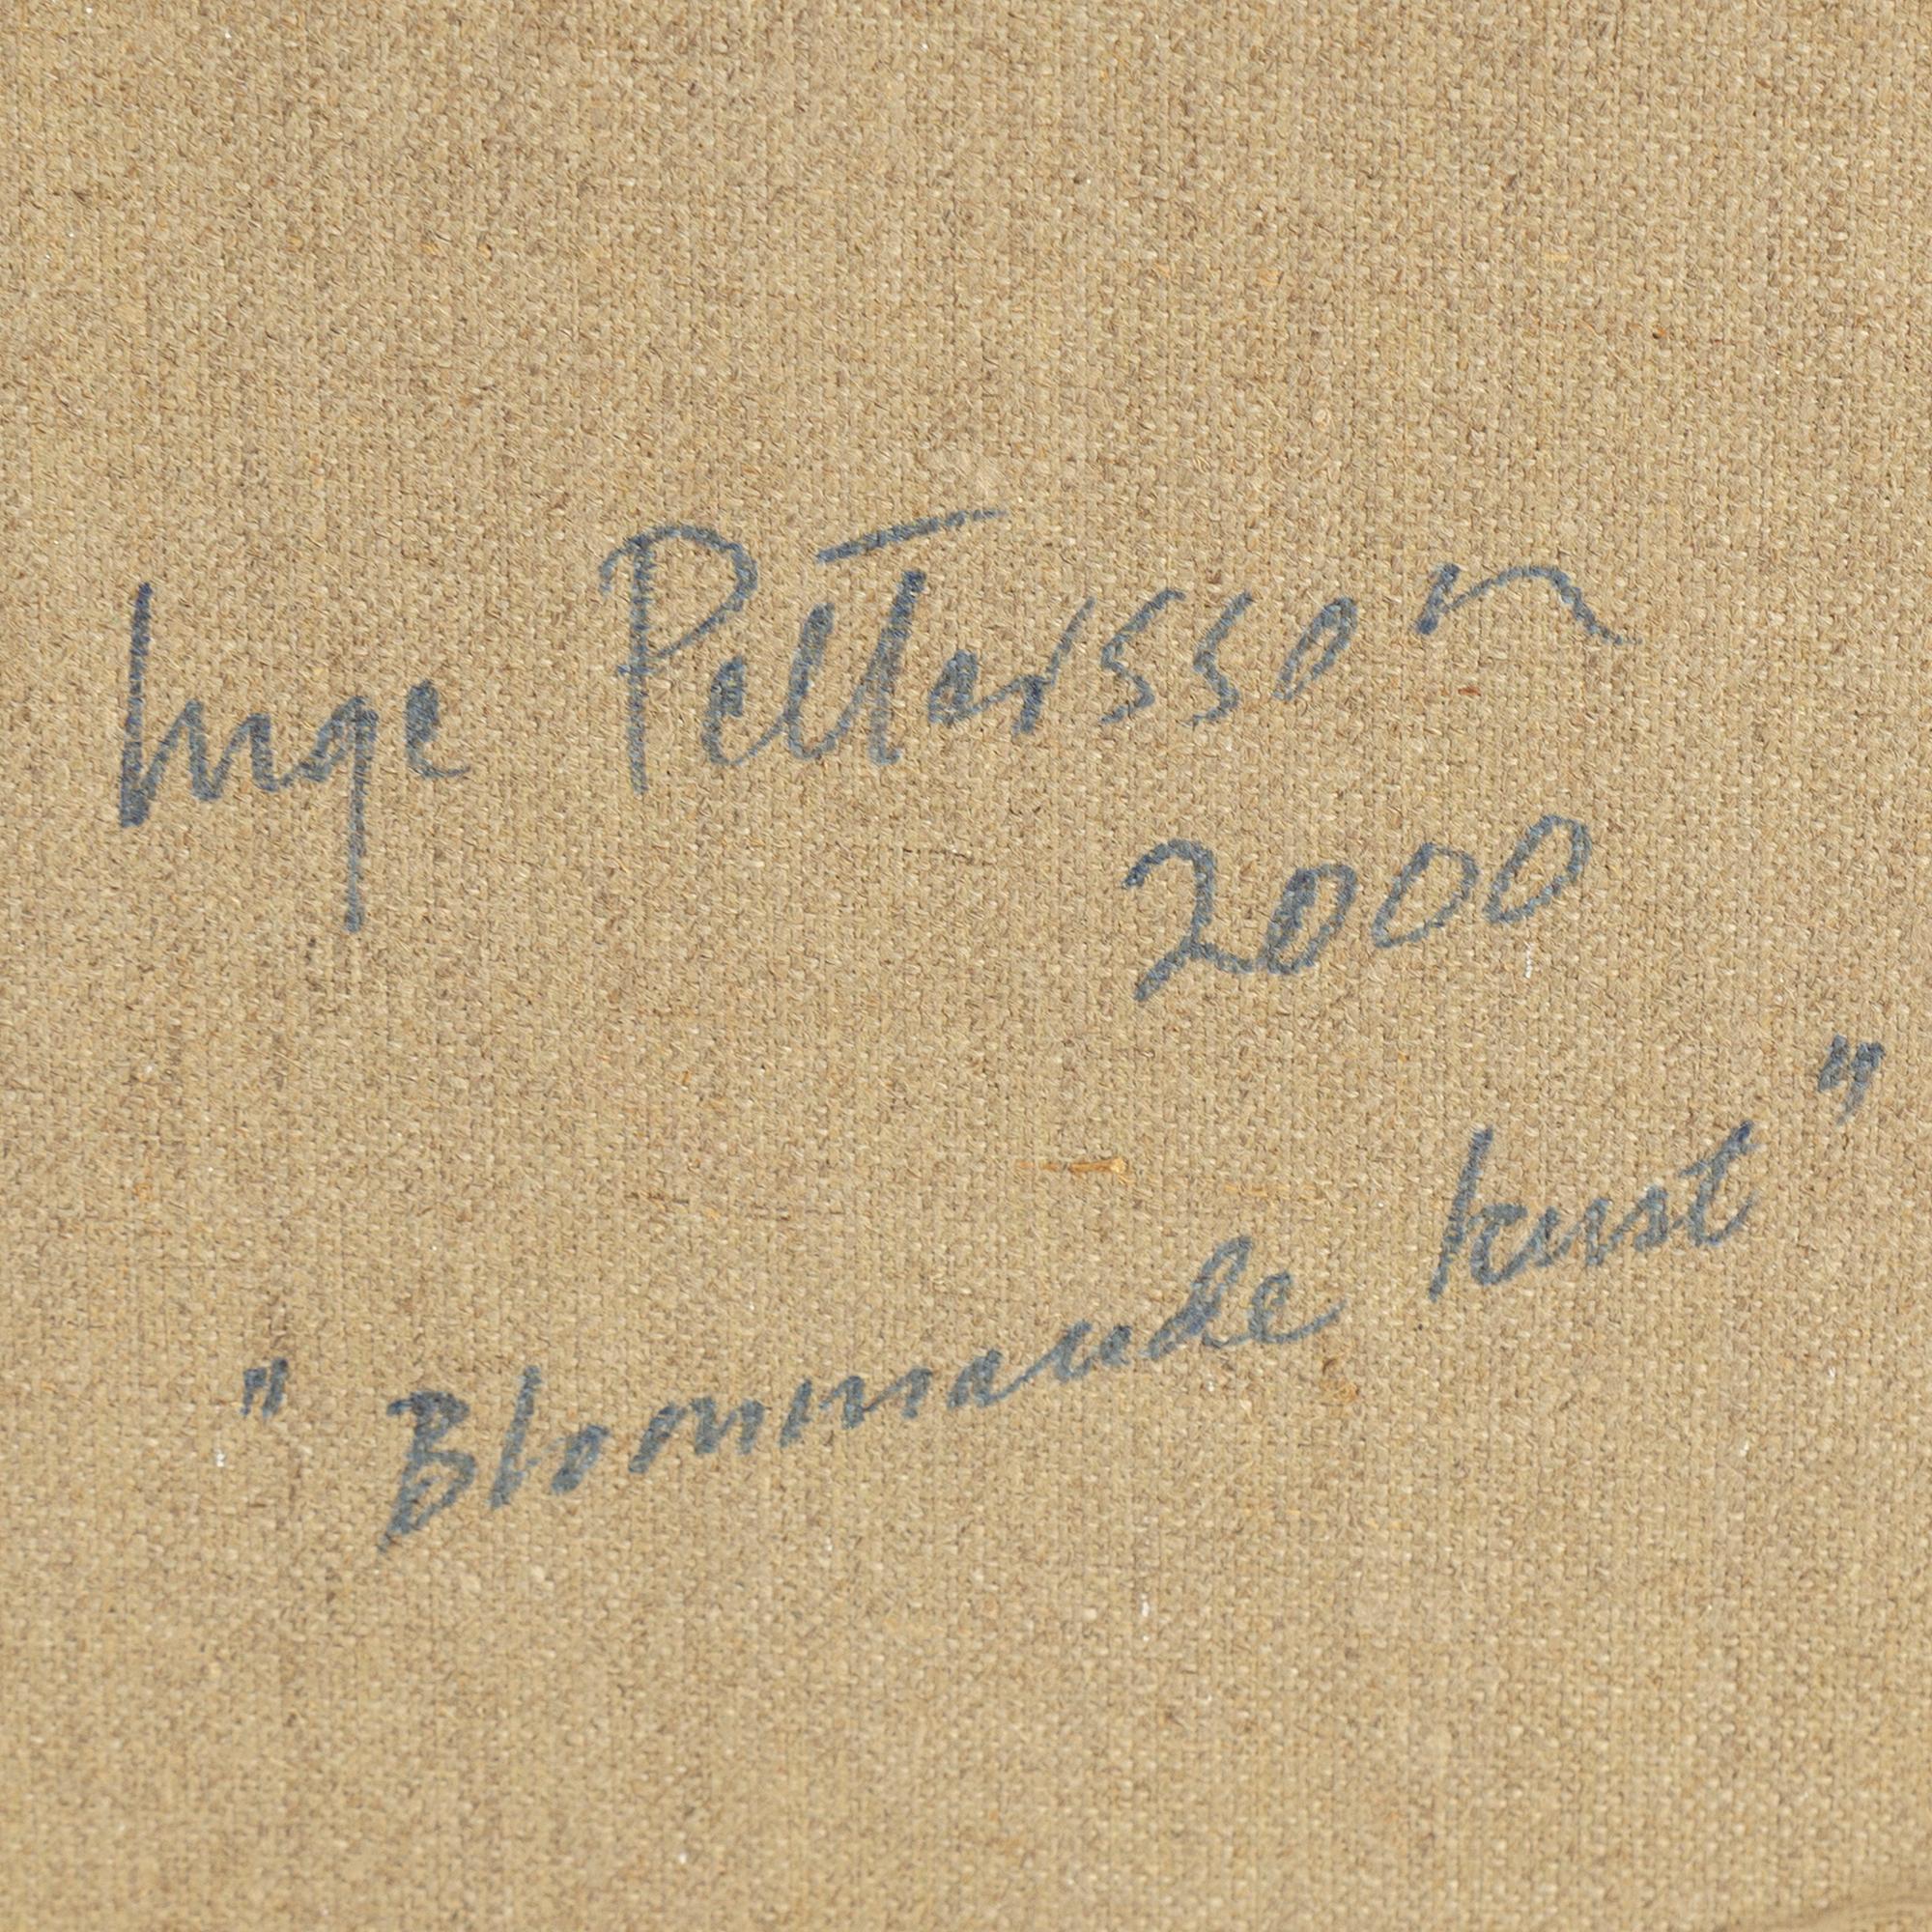 Inge Pettersson
2000
"Blommande kust"